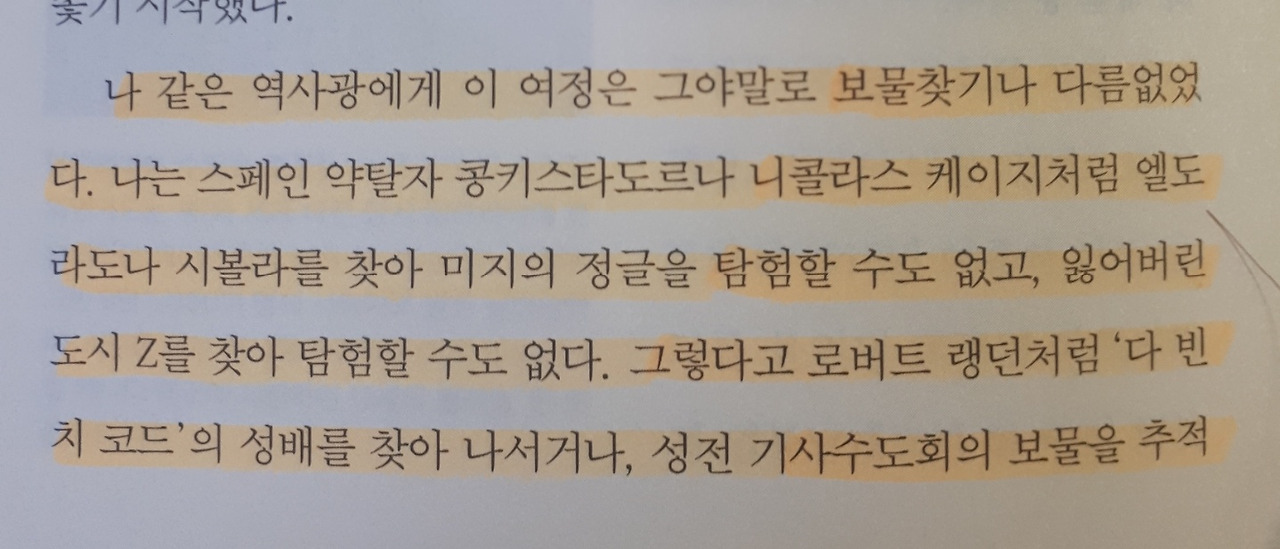 꽃기 시작했다.
나 같은 역사광에게 이 여정은 그야말로 보물찾기나 다름없었
다. 나는 스페인 약탈자 콩키스타도르나 니콜라스 케이지처럼 엘도
라도나 시볼라를 찾아 미지의 정글을 탐험할 수도 없고, 잃어버린
도시 Z를 찾아 탐험할 수도 없다. 그렇다고 로버트 랭던처럼 ‘다 빈
치 코드’의 성배를 찾아 나서거나, 성전 기사수도회의 보물을 추적